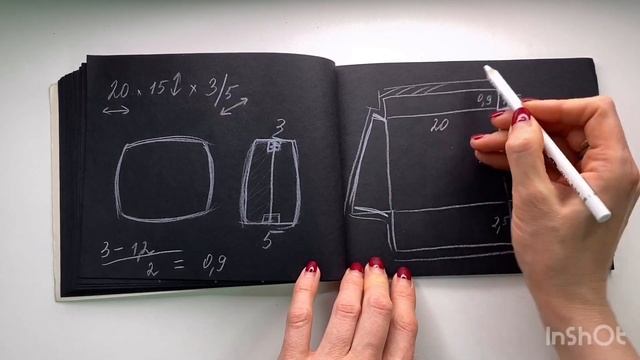 20 x 15 x 3/5
3
5
3 - 1,2
2
= 0,9
0,9
20
InShOt